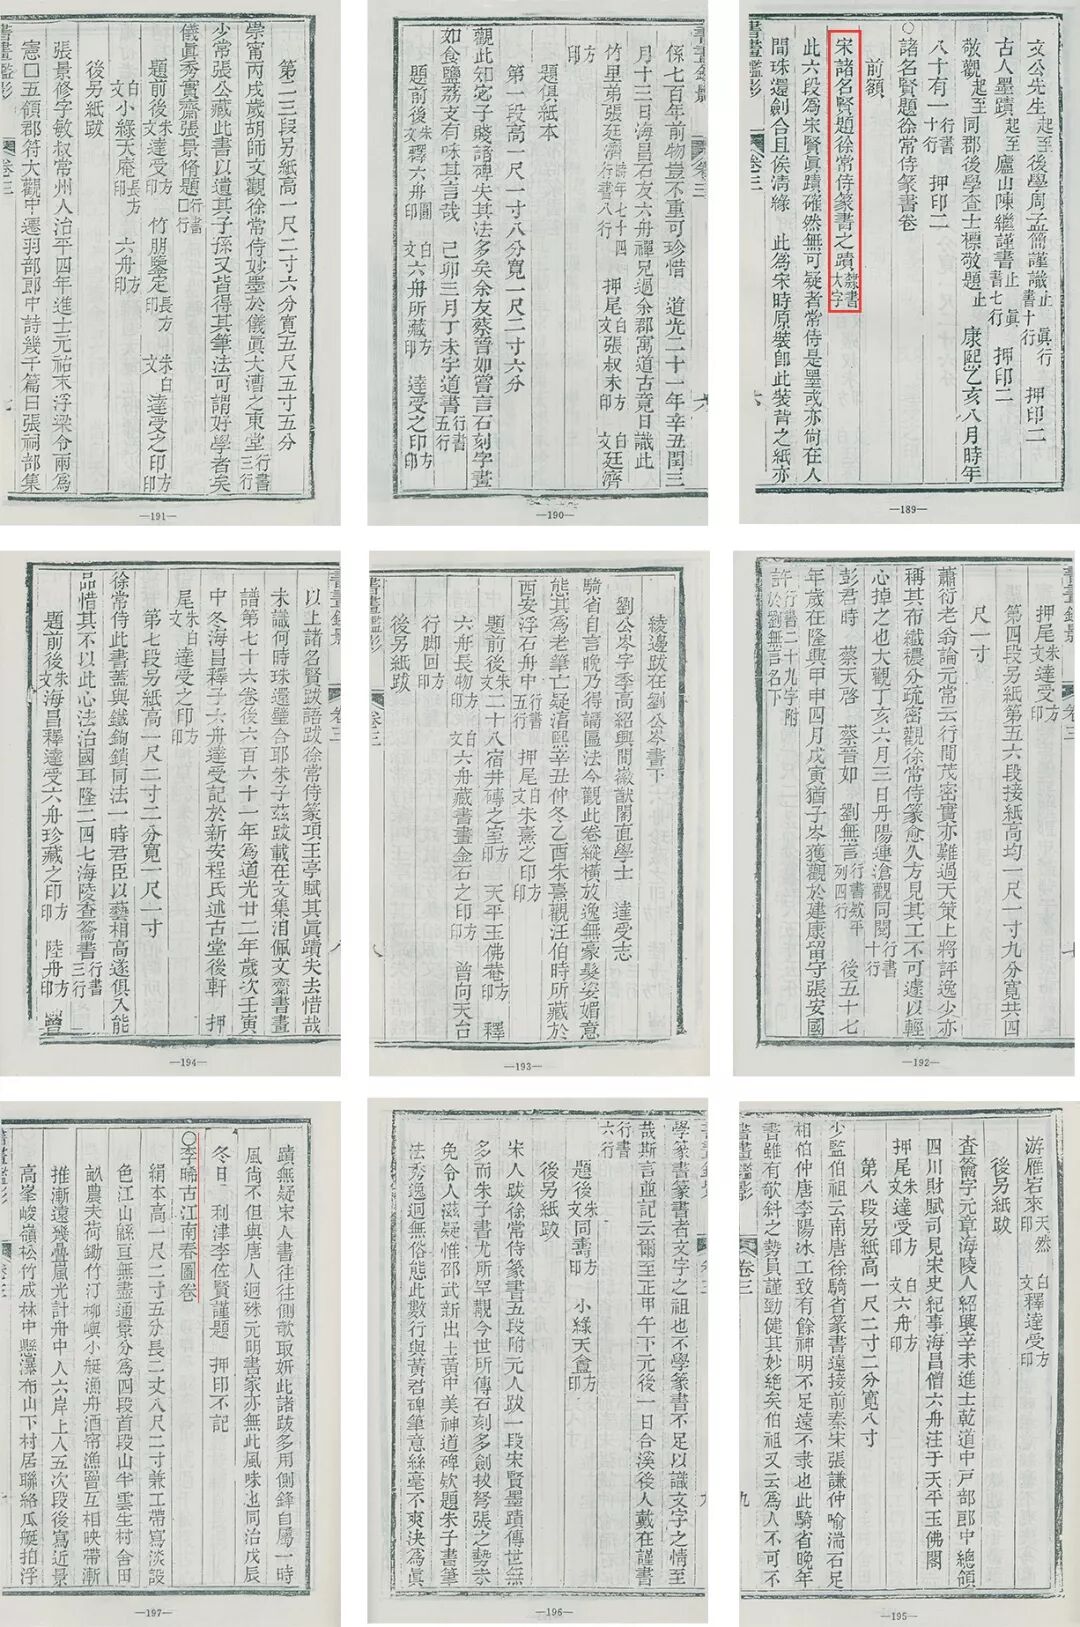 文公先生起至後學周孟簡謹識止眞行書十行 押印二
古人墨蹟起至廬山陳繼謹書止眞書七行 押印二
敬觀起至同郡後學查士標敬題止 康熙乙亥八月時年
八十有一行書十行 押印二
○諸名賢題徐常侍篆書卷
前額
宋諸名賢題徐常侍篆書之蹟隸書大字
此六段爲宋賢眞蹟確然無可疑者常侍是墨或亦尙在人
間珠還劍合且俟淸緣 此爲宋時原裝卽此裝背之紙亦
書畫鑑影 卷三 六
—189—
係七百年前物豈不重可珍惜 道光二十一年辛丑閏三
月十三日海昌石友六舟禪兄過余郡寓道古竟日識此
竹里弟張廷濟時年七十四行書八行 押尾白文張叔未方印 白文廷濟方印
題俱紙本
第一段高一尺一寸八分寬一尺二寸六分
觀此知宓子賤諸碑失其法多矣余友蔡晉如嘗言石刻字畫
如食鹽荔支有味其言哉 己卯三月丁未字道書行書五行
題前後朱文釋六舟圓印 白文六舟所藏方印 達受之印方印
書畫鑑影 卷三 六
—190—
第二三段另紙高一尺二寸六分寬五尺五寸五分
崇甯丙戌歲胡師文觀徐常侍妙墨於儀眞大漕之東堂行書三行
少常張公藏此書以遺其子孫又皆得其筆法可謂好學者矣
儀眞秀實齋張景脩題行書□行
題前後朱文達受方印 竹朋鑒定長方印 朱白文達受之印方印
白文小綠天庵長方印 六舟方印
後另紙跋
張景修字敏叔常州人治平四年進士元祐末浮梁令兩爲
憲□五領郡符大觀中遷羽部郎中詩幾千篇曰張祠部集
書畫鑑影 卷三 七
—191—
押尾朱文達受方印
第四段另紙第五六段接紙高均一尺一寸九分寬共四
尺一寸
蕭衍老翁論元常云行間茂密實亦難過天策上將評逸少亦
稱其布纖穠分疏密觀徐常侍篆愈久方見其工不可遽以輕
心掉之也大觀丁亥六月三日丹陽連滄觀同閱行書十行
彭君時 蔡天啓 蔡晉如 劉無言行書欵平列四行 後五十七
年歲在隆興甲申四月戊寅猶子岑獲觀於建康留守張安國
許行書二十九字附於劉無言名下
書畫鑑影 卷三 七
—192—
綾邊跋在劉公岑書下
劉公岑字季高紹興間徽猷閣直學士 達受志
騎省自言晚乃得䛒匾法今觀此卷縱橫放逸無豪髮姿媚意
態其爲老筆亡疑淳熙辛丑仲冬乙酉朱熹觀汪伯時所藏於
西安浮石舟中行書五行 押尾白文朱熹之印方印
題前後朱文二十八宿井磚之室方印 天平玉佛菴方印 釋
六舟長物方印 白文六舟藏書畫金石之印方印 曾向天台
行脚回方印
後另紙跋
書畫鑑影 卷三 八
—193—
以上諸名賢跋語跋徐常侍篆項王亭賦其眞蹟失去惜哉
未識何時珠還璧合耶朱子茲跋載在文集洎佩文齋書畫
譜第七十六卷後六百六十一年爲道光廿二年歲次壬寅
中冬海昌釋子六舟達受記於新安程氏述古堂後軒 押
尾朱白文達受之印方印
第七段另紙高一尺二寸二分寬一尺一寸
徐常侍此書蓋與鐵鉤鎖同法一時君臣以藝相高遂俱入能
品惜其不以此心法治國耳隆二四七海陵查籥書行書三行
題前後朱文海昌釋達受六舟珍藏之印方印 陸舟方印 曾
書畫鑑影 卷三 八
—194—
游雁宕來天然印 白文釋達受方印
後另紙跋
查籥字元章海陵人紹興辛未進士乾道中戸部郎中總領
四川財賦司見宋史紀事海昌僧六舟注于天平玉佛閣
押尾朱文達受方印 白文六舟方印
第八段另紙高一尺二寸二分寬八寸
少監伯祖云南唐徐騎省篆書遠接前秦宋張謙仲喻湍石足
相伯仲唐李陽冰工致有餘神明不足遠不隶也此騎省晚年
書雖有欹斜之勢員謹勁健其妙絶矣伯祖又云爲人不可不
書畫鑑影 卷三 九
—195—
學篆書篆書者文字之祖也不學篆書不足以識文字之情至
哉斯言並記云爾至正甲午下元後一日合溪後人戴在謹書
行書六行
題後朱文同壽方印 小綠天盦方印
後另紙跋
宋人跋徐常侍篆書五段附元人跋一段宋賢墨蹟傳世無
多而朱子書尤所罕覯今世所傳石刻多劍拔弩張之勢未
免令人滋疑惟邵武新出土黃中美神道碑欵題朱子書筆
法秀逸迥無俗態此數行與黃君碑筆意絲毫不爽決爲眞
書畫鑑影 卷三 九
—196—
蹟無疑宋人書往往側欹取妍此諸跋多用側鋒自屬一時
風尙不但與唐人迥殊元明書家亦無此風味也同治戊辰
冬日 利津李佐賢謹題 押印不記
○李晞古江南春圖卷
絹本高一尺二寸五分長二丈八尺二寸兼工帶寫淡設
色江山緜亘無盡通景分爲四段首段山半雲生村舍田
畝農夫荷鋤竹汀柳嶼小艇漁舟酒帘漁罾互相映帶漸
推漸遠幾疊嵐光計舟中人六岸上人五次段後寫近景
高峯峻嶺松竹成林中懸瀑布山下村居聯絡瓜艇拍浮
書畫鑑影 卷三 十
—197—